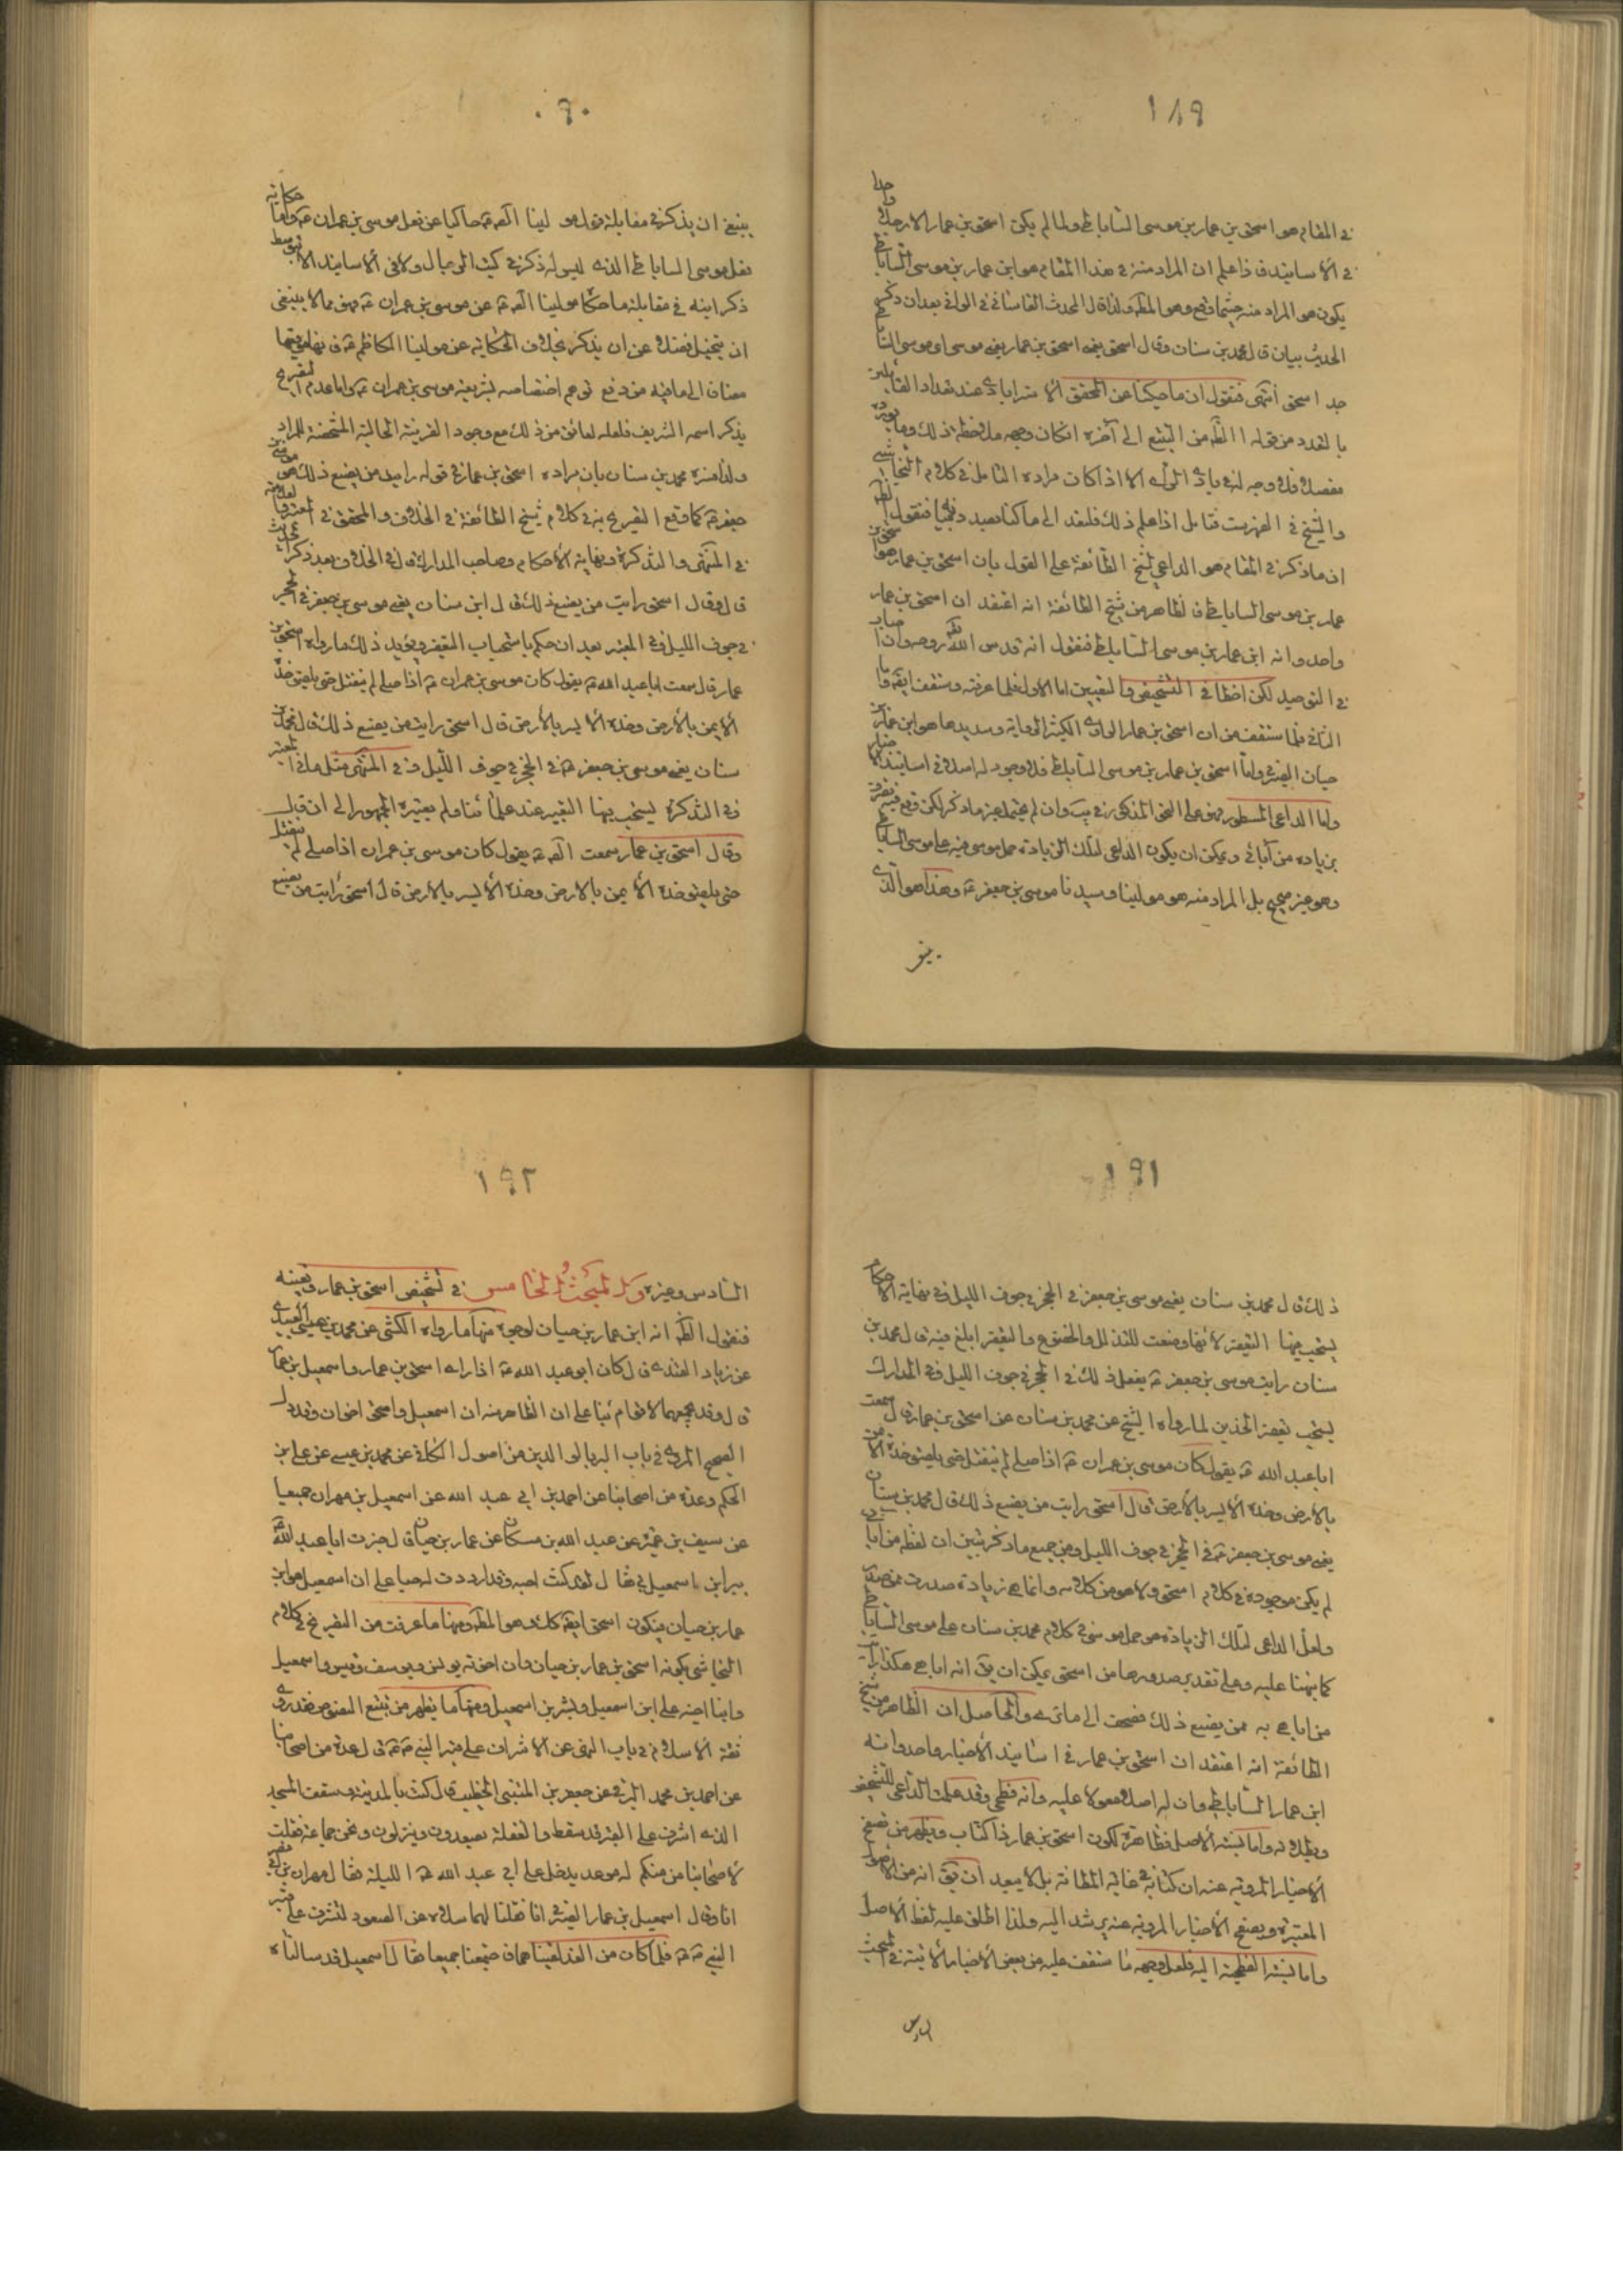 ١٨٩
في المقام هو اسحق بن عمار بن موسى الساباطي ولما لم يكن اسحق بن عمار الا رجلا واحدا
في الاسانيد فاعلم ان المراد منه في هذا المقام هو ابن عمار بن موسى الساباطي
يكون هو المراد منه حيثما وقع وهو المط ولذا قال المحدث القاساني في الوافي بعد ان ذكر
الحديث بيان قال محمد بن سنان وقال اسحق يعني اسحق بن عمار يعني موسى اي موسى الساباطي
جد اسحق انتهى فنقول ان ما حكينا عن المحقق الاسترابادي عند تعداد القائلين
بالتعدد من قوله الظ من التتبع الى آخره امكان وجهه ملاحظة ذلك وما نورده
مفصلا فلا وجه له في بادي الراي الا اذا كان مراده التامل في كلام النجاشي
والشيخ في الفهرست فتامل اذا علم ذلك فلنعد الى ما كنا بصدده فنقول
ان ما ذكر في المقام هو الداعي لشيخ الطائفة على القول بان اسحق بن عمار هو اسحق بن
عمار بن موسى الساباطي فالظاهر من شيخ الطائفة انه اعتقد ان اسحق بن عمار
واحد وانه ابن عمار بن موسى الساباطي فنقول انه قدس الله روحه وان اصاب
في التوحيد لكن اخطا في التشخيص والتعيين اما الاول فلما عرفته وستقف ايضا واما
الثاني فلما ستقف من ان اسحق بن عمار الراوي الكثير الرواية وسديدها هو ابن عمار بن
حيان الصيرفي واما اسحق بن عمار بن موسى الساباطي فلا وجود له اصلا في اسانيد الاخبار
واما الداعي المسطور فهو على النحو المذكور في يب وان لم يحتمل غير ما ذكر لكن وقع فيه تصرف
بزياده من آبائي ويمكن ان يكون الداعي لتلك الزيادة حمل موسى فيه على موسى الساباطي
وهو غير صحيح بل المراد منه هو مولينا وسيدنا موسى بن جعفر ع وهذا هو الذي
ينبغي
٩٠
ينبغي ان يذكر في مقابلة قول مولينا الصم ع حاكيا عن فعل موسى بن عمران ع واما حكاية
فعل موسى الساباطي الذي ليس له ذكر في كتب الرجال ولا في الاسانيد الا بتوسط
ذكر ابنه في مقابلة ما حكاه مولينا الصم ع عن موسى بن عمران ع فهو مما لا ينبغي
ان يتخيل فضلا عن ان يذكر بخلاف الحكاية عن مولينا الكاظم ع فانها في موقعها
مضافا الى ما فيه من دفع توهم اختصاصه بشريعة موسى بن عمران ع واما عدم التصريح
بذكر اسمه الشريف فلعله لعائق من ذلك مع وجود القرينة الحالية المشخصة للمراد
ولذا فسره محمد بن سنان بان مراده اسحق بن عمار في قوله رايت من يصنع ذلك هو موسى بن
جعفر ع كما وقع التصريح به في كلام شيخ الطائفة في الخلاف والمحقق في المعتبر والعلامة
في المنتهى والتذكرة ونهاية الاحكام وصاحب المدارك قال في الخلاف بعد ذكر الحديث
قال وقال اسحق رايت من يصنع ذلك قال ابن سنان يعني موسى بن جعفر في الحجر
في جوف الليل وفي المعتبر بعد ان حكم باستحباب التعفير ويؤيد ذلك ما رواه اسحق بن
عمار قال سمعت ابا عبد الله ع يقول كان موسى بن عمران ع اذا صلى لم ينفتل حتى يلصق خده
الايمن بالارض وخده الايسر بالارض قال اسحق رايت من يصنع ذلك قال محمد بن
سنان يعني موسى بن جعفر ع في الحجر في جوف الليل وفي المنتهى مثل ما في المعتبر
وفي التذكرة يستحب فيها التعفير عند علمائنا ولم يعتبره الجمهور الى ان قال
وقال اسحق بن عمار سمعت الصم ع يقول كان موسى بن عمران اذا صلى لم ينفتل
حتى يلصق خده الايمن بالارض وخده الايسر بالارض قال اسحق رايت من يصنع
١٩١
ذلك قال محمد بن سنان يعني موسى بن جعفر في الحجر في جوف الليل وفي نهاية الاحكام
يستحب فيها التعفير لانها وضعت للتذلل والخضوع والتعفير ابلغ فيه قال محمد بن
سنان رايت موسى بن جعفر ع يفعل ذلك في الحجر في جوف الليل وفي المدارك
يستحب تعفير الخدين لما رواه الشيخ عن محمد بن سنان عن اسحق بن عمار قال سمعت
ابا عبد الله ع يقول كان موسى بن عمران ع اذا صلى لم ينفتل حتى يلصق خده الايمن
بالارض وخده الايسر بالارض قال اسحق رايت من يصنع ذلك قال محمد بن سنان
يعني موسى بن جعفر ع في الحجر في جوف الليل ومن جميع ما ذكر يتبين ان لفظة من آبائي
لم يكن موجودة في كلام اسحق ولا هو من كلامه وانما هي زيادة صدرت ممن صدرت
ولعل الداعي لتلك الزيادة هو حمل موسى في كلام محمد بن سنان على موسى الساباطي
كما نبهنا عليه وعلى تقدير صدورها من اسحق يمكن ان يق انه اباء هكذا رايت
من اباء به ممن يصنع ذلك فصحف الى ما ترى والحاصل ان الظاهر من شيخ
الطائفة انه اعتقد ان اسحق بن عمار في اسانيد الاخبار واحد وانه
ابن عمار الساباطي وان له اصلا معولا عليه وانه فطحي وقد علمت الداعي للتشخيص
وبطلانه واما نسبة الاصل فظاهرة لكون اسحق بن عمار ذا كتاب ويظهر من تصفح
الاخبار المروية عنه ان كتابه في غاية المتانة بل لا يبعد ان يق انه من الاصول
المعتبرة وتصفح الاخبار المروية عنه يرشد اليه ولذا اطلق عليه لفظ الاصل
واما نسبة الفطحية اليه فلعل وجهه ما ستقف عليه من بعض الاخبار الاتية في المبحث
السادس
١٩٢
السادس وغيره المبحث الخامس في تشخيص اسحق بن عمار وتعيينه
فنقول الظ انه ابن عمار بن حيان لوجوه منها ما رواه الكشي عن محمد بن عيسى العبيدي
عن زياد القندي قال كان ابو عبد الله ع اذا راى اسحق بن عمار واسمعيل بن عمار
قال وقد يجمعهما لاقوام بناء على ان الظاهر منه ان اسمعيل واسحق اخوان وقد دل
الصحيح المروي في باب البر بالوالدين من اصول الكافي عن محمد بن عيسى عن علي بن
الحكم وعدة من اصحابنا عن احمد بن ابي عبد الله عن اسمعيل بن مهران جميعا
عن سيف بن عميرة عن عبد الله بن مسكان عن عمار بن حيان قال خبرت ابا عبد الله
ببر ابني اسمعيل بي فقال لقد كنت احبه وقد ازددت له حبا على ان اسمعيل هو ابن
عمار بن حيان فيكون اسحق ايضا كك وهو المط ومنها ما عرفت من التصريح في كلام
النجاشي بكونه اسحق بن عمار بن حيان وان اخوته يونس ويوسف وقيس واسمعيل
وابنا اخيه علي ابن اسمعيل وبشر بن اسمعيل ومنها ما يظهر من تتبع النصوص فقد روى
ثقة الاسلام في باب النهي عن الاشراف على قبر النبي ص قال عدة من اصحابنا
عن احمد بن محمد البرقي عن جعفر بن المثنى الخطيب قال كنت بالمدينة وسقف المسجد
الذي اشرف على القبر قد سقط والفعلة يصعدون وينزلون ونحن جماعة فقلت
لاصحابنا من منكم له موعد يدخل على ابي عبد الله ع الليلة فقال مهران بن ابي نصر
انا وقال اسمعيل بن عمار الصيرفي انا فقلنا لهما سلاه عن الصعود لنشرف على قبر
النبي ص فلما كان من الغد لقيناهما فاجتمعنا جميعا فقال اسمعيل قد سالناه